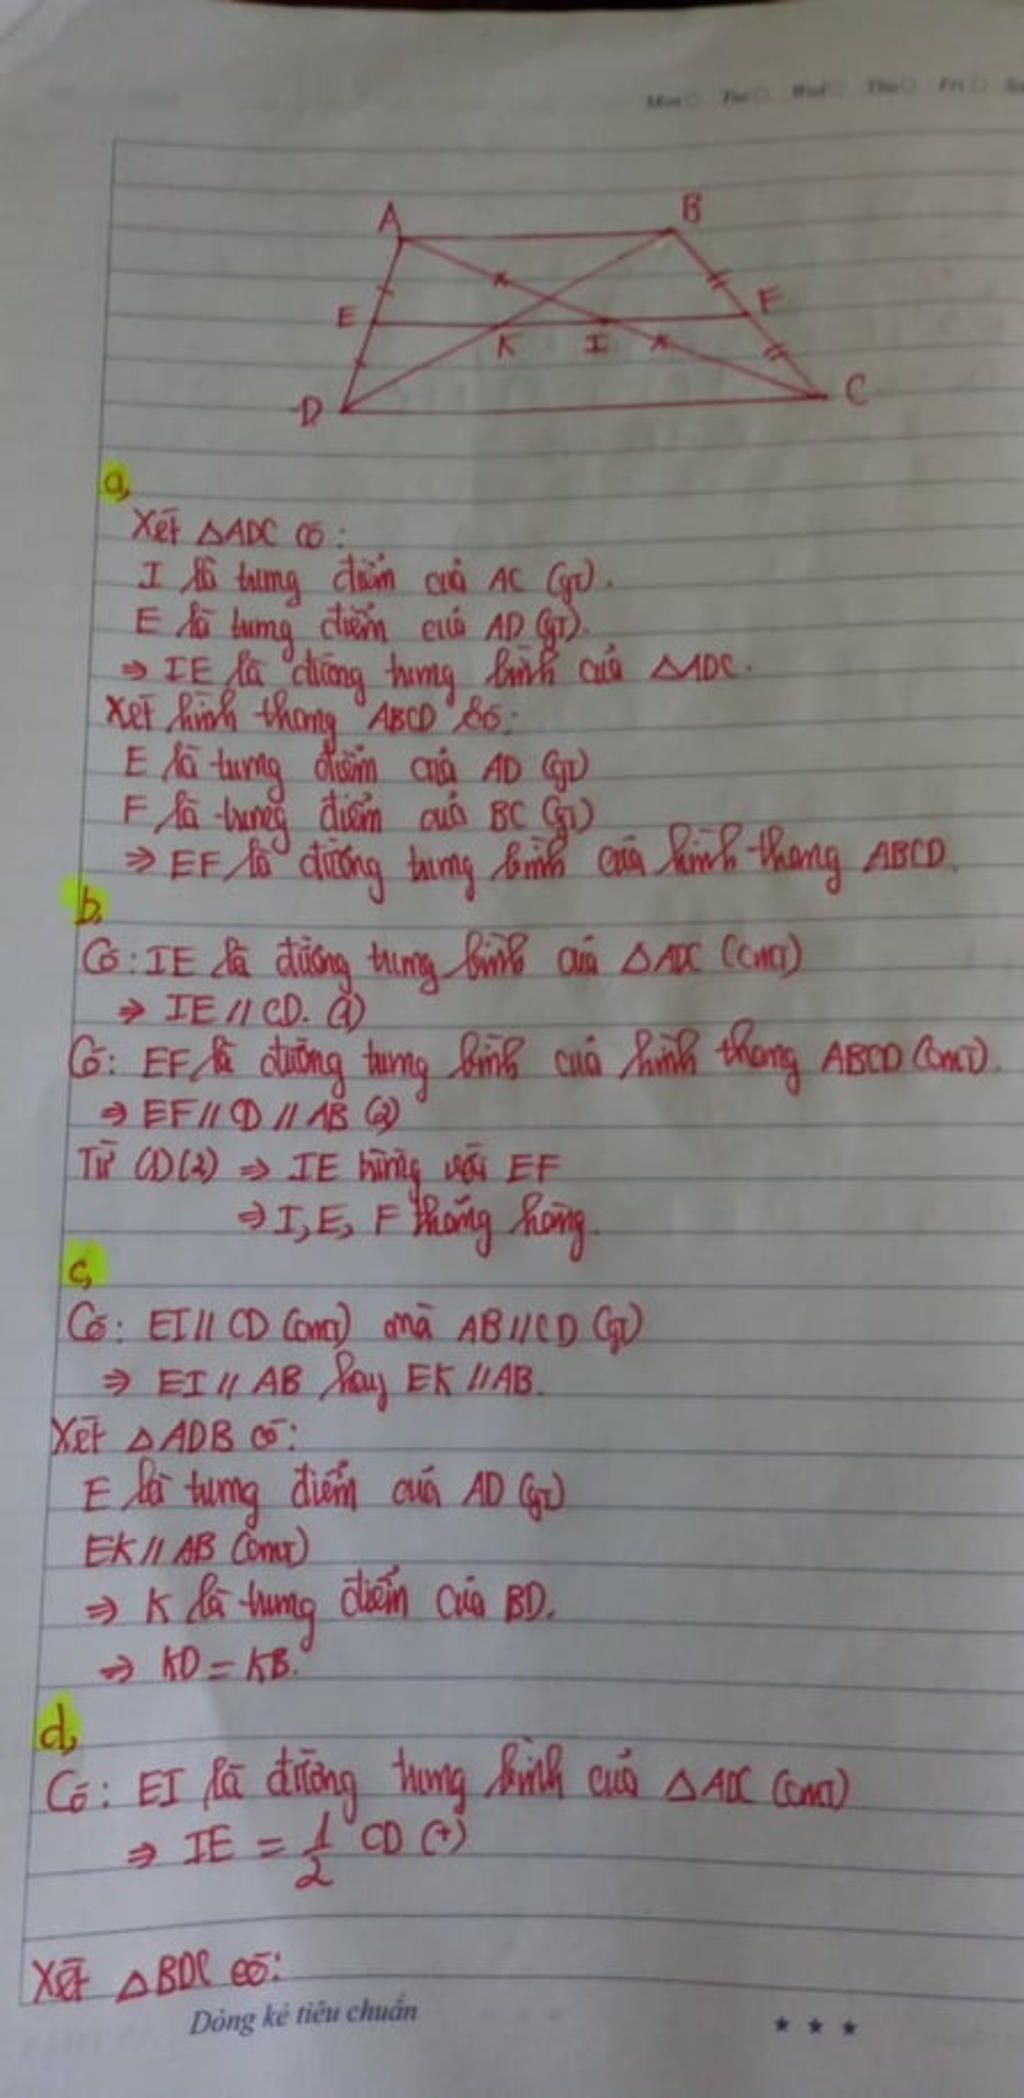 Mon Tue Wed Thu Fri
A B
E F
K I
D C
a,
Xét △ADC có:
I là trung điểm của AC (gt).
E là trung điểm của AD (gt).
⇒ IE là đường trung bình của △ADC.
Xét hình thang ABCD có:
E là trung điểm của AD (gt)
F là trung điểm của BC (gt)
⇒ EF là đường trung bình của hình thang ABCD.
b,
Có: IE là đường trung bình của △ADC (cmt)
⇒ IE // CD. (1)
Có: EF là đường trung bình của hình thang ABCD (cmt).
⇒ EF // CD // AB (2)
Từ (1)(2) ⇒ IE trùng với EF
⇒ I, E, F thẳng hàng.
c,
Có: EI // CD (cmt) mà AB // CD (gt)
⇒ EI // AB hay EK // AB.
Xét △ADB có:
E là trung điểm của AD (gt)
EK // AB (cmt)
⇒ K là trung điểm của BD.
⇒ KD = KB.
d,
Có: EI là đường trung bình của △ADC (cmt)
⇒ IE = 1/2 CD (*)
Xét △BDC có:
Dòng kẻ tiêu chuẩn ★ ★ ★